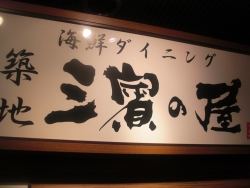 海鮮ダイニング
築地
三濱の屋